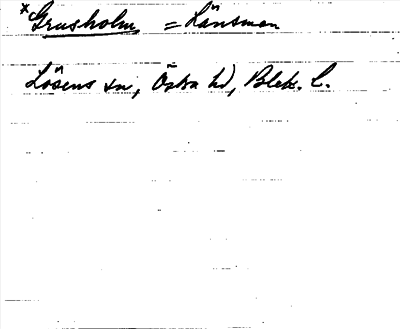 *Grusholm = Länsman
Lösens sn, Östra hd, Blek. l.